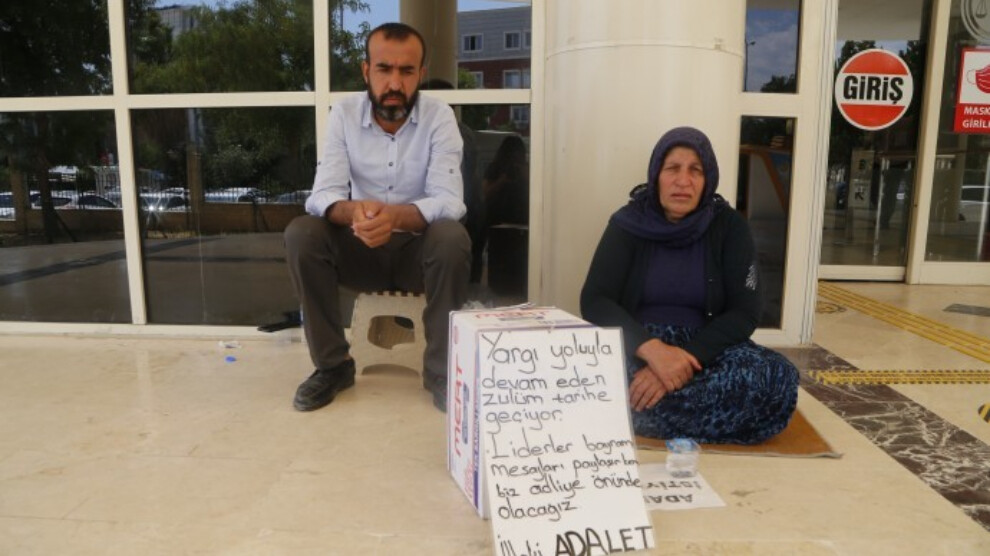 Yargı yoluyla
devam eden
zulüm tarihe
geçiyor.
Liderler bayram
mesajları paylaşırken
biz adliye önünde
olacağız
illaki ADALET
MERT
GİRİŞ
MASK
GİRİL
ADAL
İSTİY